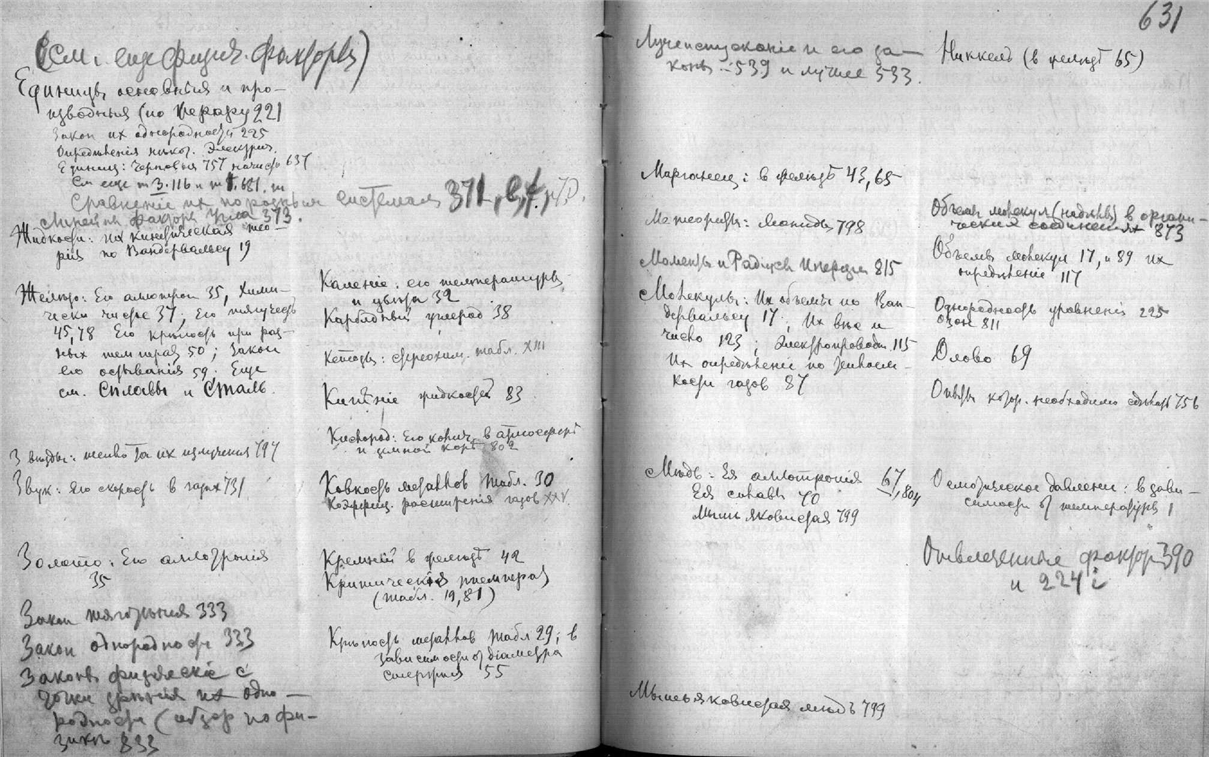 (См. еще физич. факторы)
Единицы основныя и про-
изводныя (по Перару 221
Закон их однородности 225
Определенiя Электрич.
Единиц: Черновыя 757 637
См еще т 3. 116 и т 1. 681,
Сравненiе их по разным системам 371,
фактор 373.
Жидкости: их кинетическая тео-
рия по Вандервальсу 19
Железо: Его аллотроп 35, Хими-
чески чистое 37, Его
45, 78 Его крепость при раз-
ных температ 50; Закон
его остыванiя 59. Еще
см. Сплавы и Сталь.
Звезды: их излученiя 797
Звук: его скорость в газах 731
Золото: Его аллотропiя
35
Закон тяготенiя 333
Закон однородности 333
Законы физическiе с
точки зренiя их одно-
родности (обзор по фи-
зике 833
Каленiе: его температуры
и цвета 32
Карбидный углерод 38
Кетоны: стереохим. табл. XIII
Кипенiе жидкостей 83
Кислород: Его колич. в атмосфере
и земной коре 802
Ковкость металлов табл. 30
Коэффиц. расширенiя газов XXV.
Кремнiй в железе 42
Критическiя температ
(табл. 19, 81)
Крепость металлов табл 29; в
зависимости от дiаметра
55
631
Лучеиспусканiе и его за-
коны 539 и лучше 533.
Марганец: в железе 43, 65
Метеориты: 798
Моменты и Радiусы Инерции 815
Молекулы: Их объемы по Ван-
дервальсу 17; Их вес и
число 123; Электропроводн 115
Их определенiе по Теплоем-
кости газов 87
Медь: Ея аллотропiя 67, 804
Ея сплавы 70
Мышьяковистая 799
Мышьяковистая медь 799
Никкель (в железе 65)
Объем молекул в органи-
ческих соединенiях 873
Объемы молекул 17, и 89 их
определенiе 117
Однородность уравненiй 225
Озон 811
Олово 69
Опыты котор. необходимо сделать 756
Осмотическое давленiе: в зави-
симости от температуры 1
Отвлеченные фактор 390
и 224